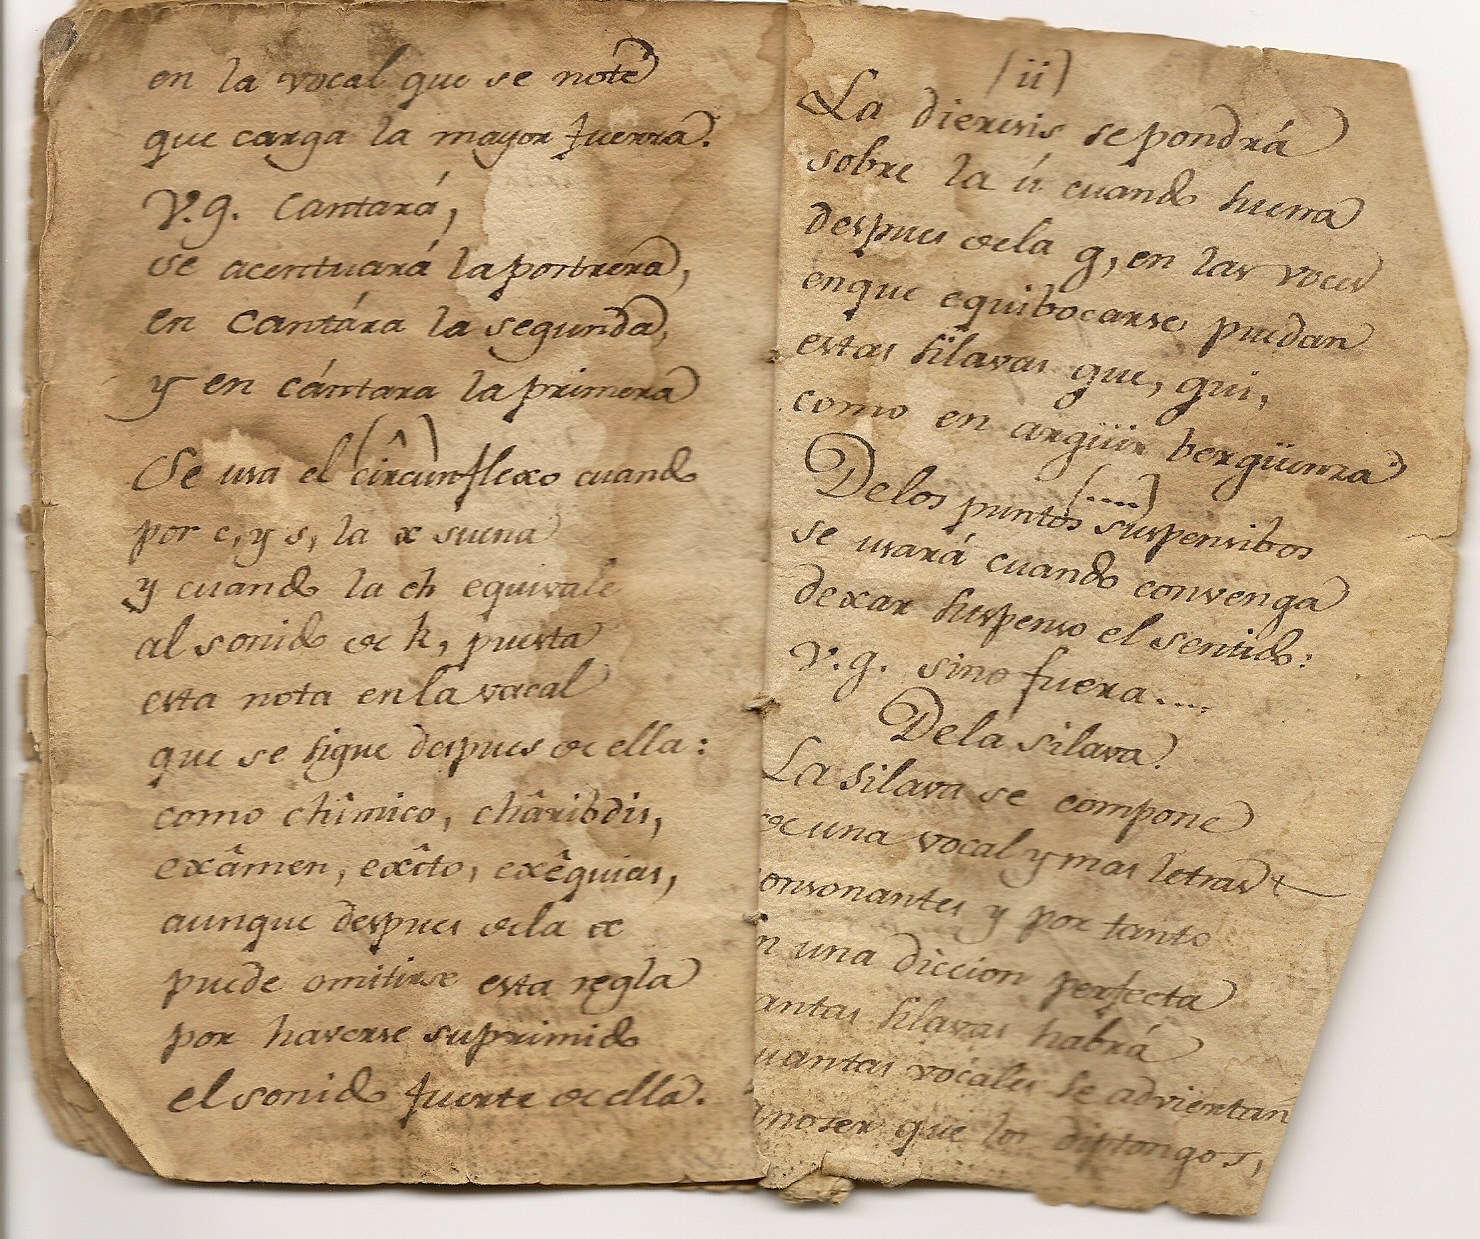 en la vocal que se note
que carga la mayor fuerza.
V.g. Cantará,
se acentuará la postrera,
en Cantára la segunda,
y en cántara la primera
(^)
Se usa el circunflexo cuando
por c, y s, la x suena
y cuando la ch equivale
al sonido de k, puesta
esta nota en la vocal
que se sigue despues de ella:
como chîmico, châribdis,
exâmen, exîto, exêquias,
aunque despues de la x
puede omitirse esta regla
por haverse suprimido
el sonido fuerte de ella.
(ii)
La dieresis se pondrá
sobre la ú cuando suena
despues de la g, en las voces
en que equibocarse puedan
estas silavas gue, gui,
como en argüir bergüenza
(....)
De los puntos suspensibos
se usará cuando convenga
dexar suspenso el sentido:
V.g. sino fuera....
De la silava.
La silava se compone
de una vocal y mas letras
onsonantes y por tanto
n una diccion perfecta
antas silavas habrá
uantas vocales se adviertan
noser que los diptongos,